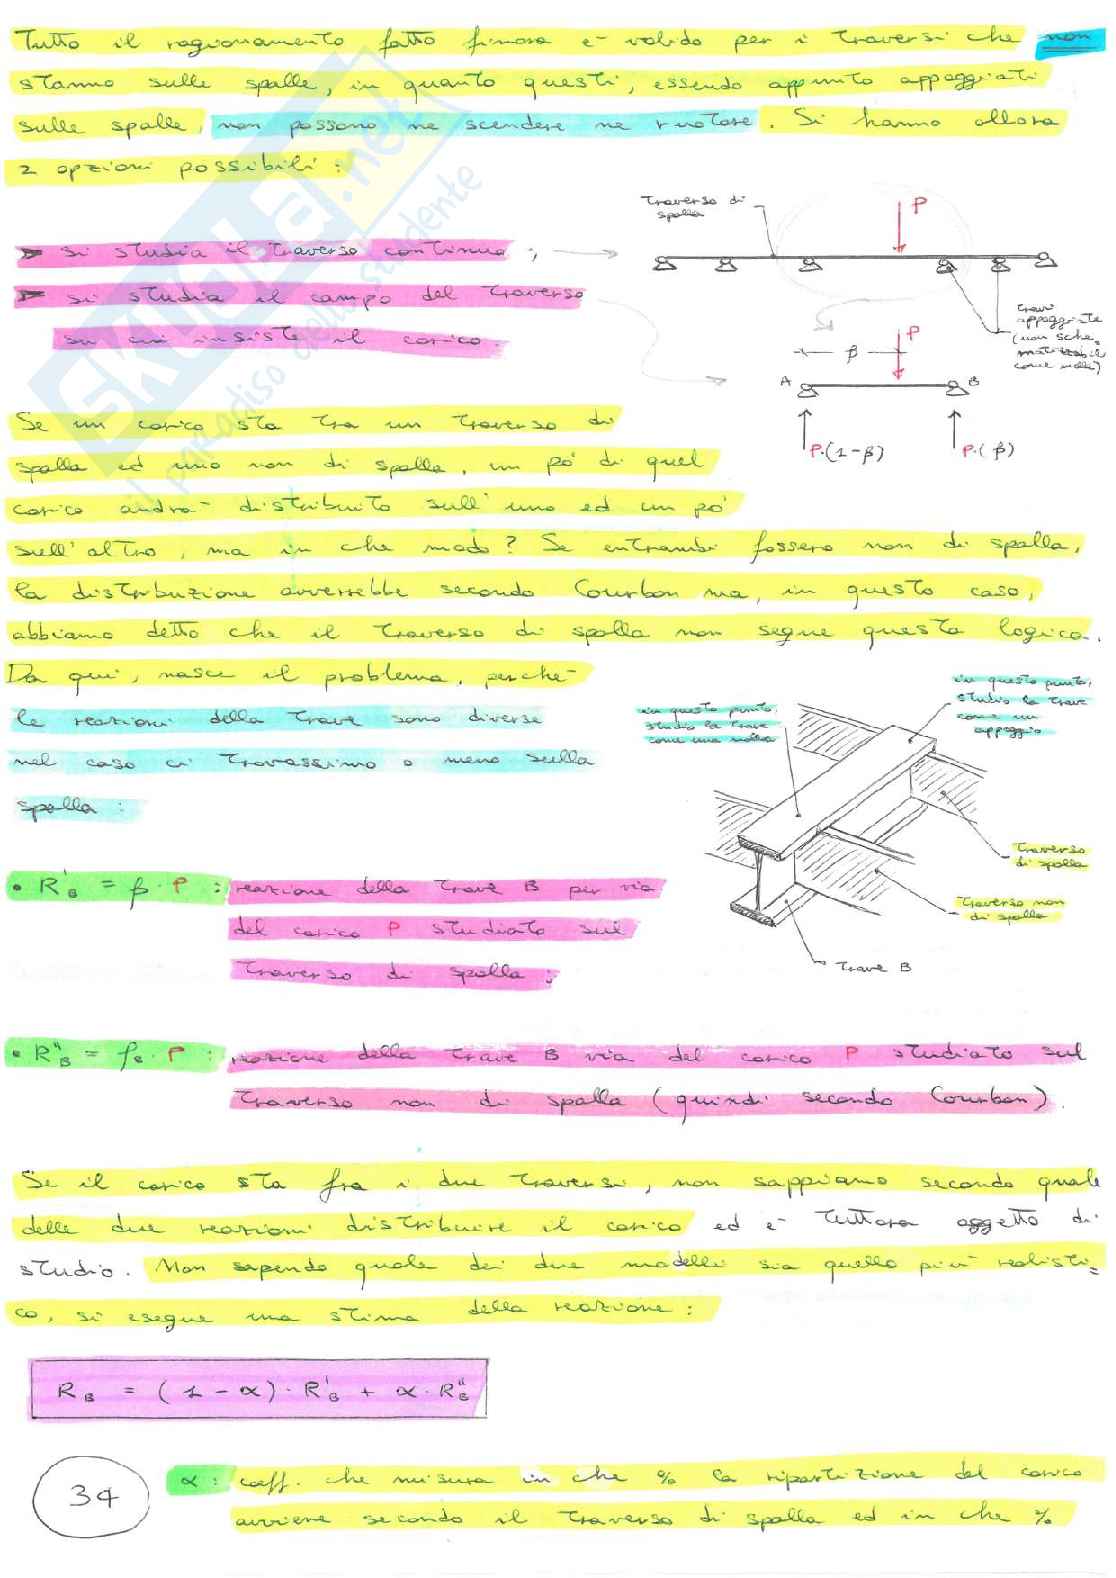 Tutto il ragionamento fatto finora e' valido per i traversi che non
stanno sulle spalle, in quanto questi, essendo appunto appoggiati
sulle spalle, non possono ne scendere ne ruotare. Si hanno allora
2 opzioni possibili:
► si studia il traverso continuo;
► si studia il campo del traverso
su cui insiste il carico.
traverso di
spalla
P
travi
appoggiate
(non sche=
matizzabili
come molle)
P
β
A
B
P·(1-β)
P·(β)
Se un carico sta tra un traverso di
spalla ed uno non di spalla, un po' di quel
carico andra' distribuito sull'uno ed un po'
sull'altro, ma in che modo? Se entrambi fossero non di spalla,
la distribuzione avverrebbe secondo Courbon ma, in questo caso,
abbiamo detto che il traverso di spalla non segue questa logica.
Da qui, nasce il problema, perche'
le reazioni della trave sono diverse
nel caso ci trovassimo o meno sulla
spalla:
in questo punto,
studio la trave
come una molla
in questo punto,
studio la trave
come un
appoggio
traverso
di spalla
traverso non
di spalla
trave B
• R'B = β·P : reazione della trave B per via
del carico P studiato sul
traverso di spalla;
• R"B = ρB·P : reazione della trave B via del carico P studiato sul
traverso non di spalla (quindi secondo Courbon).
Se il carico sta fra i due traversi, non sappiamo secondo quale
delle due reazioni distribuire il carico ed e' tuttora oggetto di
studio. Non sapendo quale dei due modelli sia quello piu' realisti=
co, si esegue una stima della reazione:
RB = (1-α)·R'B + α·R"B
34
α: coeff. che misura in che % la ripartizione del carico
avviene secondo il traverso di spalla ed in che %
SKUOLA.net
il paradiso dello studente